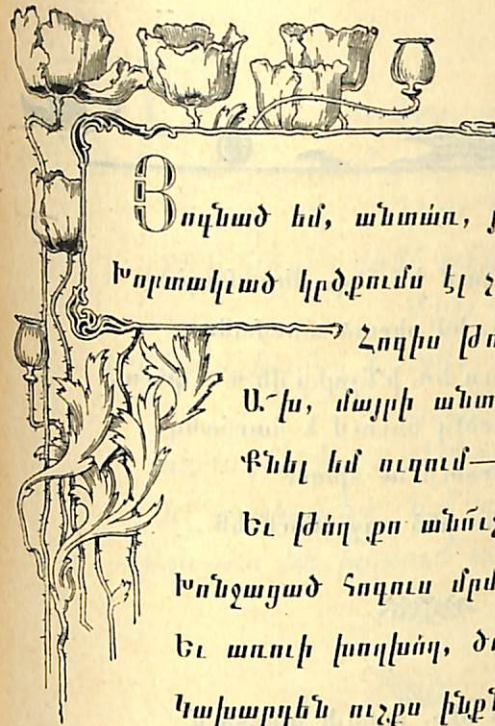 Յոգնած եմ, անտառ,
Խորտակւած կրծքումս էլ
Հոգիս
Ա՜խ, մայրի
Քնել եմ ուզում—
Եւ թող քո
Խոնջացած հոգուս
Եւ առուի խոխոջ,
Կախարդեն ուշքս